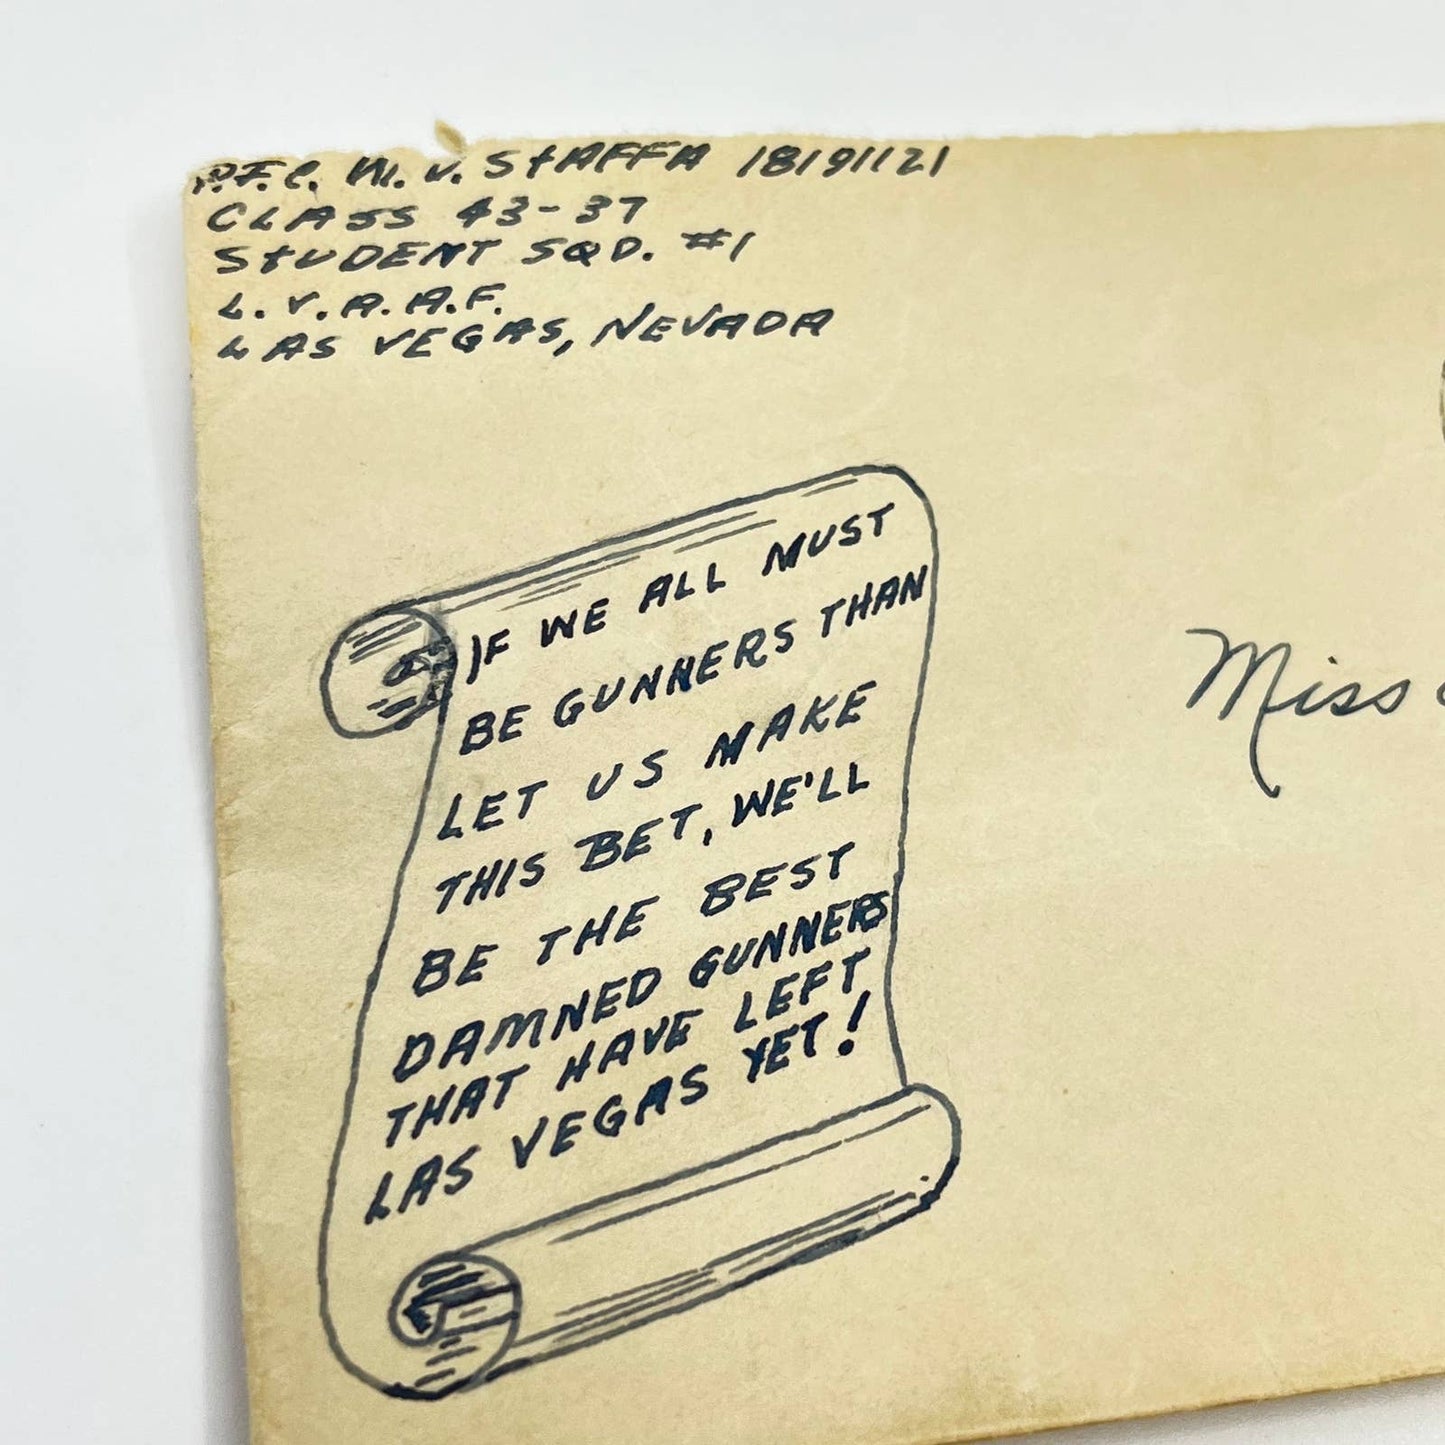 P.F.C. M. V. STAFFA 18191121
CLASS 43-37
STUDENT SQD. #1
L.V.A.A.F.
LAS VEGAS, NEVADA
IF WE ALL MUST
BE GUNNERS THAN
LET US MAKE
THIS BET, WE'LL
BE THE BEST
DAMNED GUNNERS
THAT HAVE LEFT
LAS VEGAS YET!
Miss